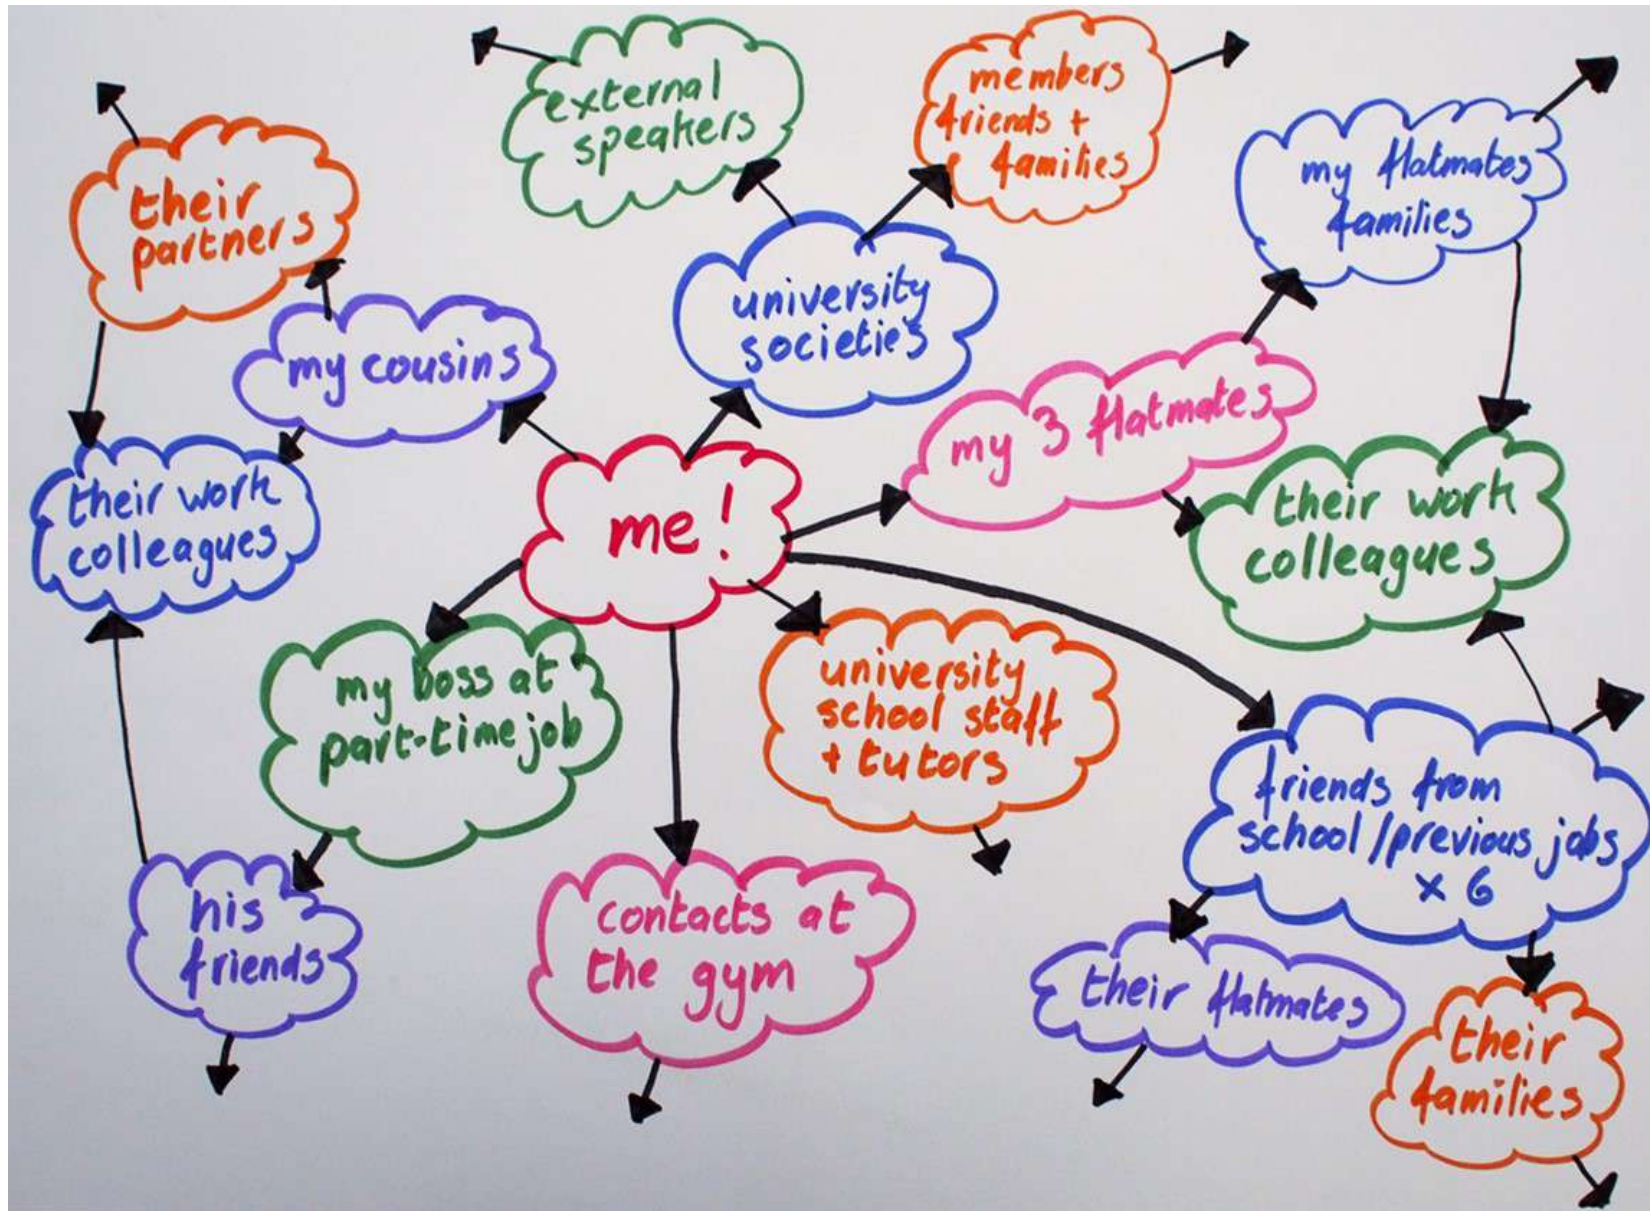 external
speakers
members
friends +
families
my flatmates
families
their
partners
university
societies
my cousins
my 3 flatmates
me!
their work
colleagues
their work
colleagues
my boss at
part-time job
university
school staff
+ tutors
friends from
school/previous jobs
x 6
his
friends
contacts at
the gym
their flatmates
their
families